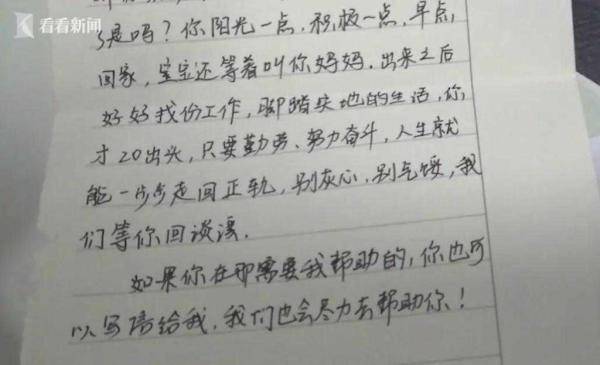 看看新闻
是吗?你阳光一点,积极一点,早点
回家,宝宝还等着叫你妈妈.出来之后
好好找份工作,脚踏实地的生活,你
才20出头,只要勤劳、努力奋斗,人生就
能一步步走回正轨,别灰心,别气馁,我
们等你回谈溪.
如果你在那需要我帮助的,你也可
以写信给我,我们也会尽力去帮助你!